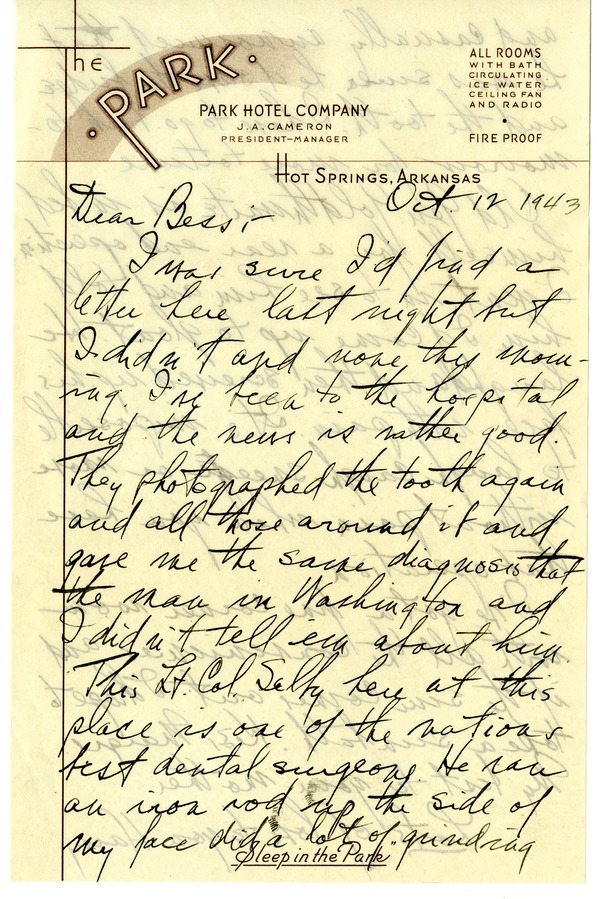 The
PARK
PARK HOTEL COMPANY
J. A. CAMERON
PRESIDENT-MANAGER
ALL ROOMS
WITH BATH
CIRCULATING
ICE WATER
CEILING FAN
AND RADIO
FIRE PROOF
HOT SPRINGS, ARKANSAS
Oct. 12 1943
Dear Bess;-
I was sure I'd find a
letter here last night but
I didn't and none this morn-
ing. I've been to the hospital
and the news is rather good.
They photographed the tooth again
and all those around it and
gave me the same diagnosis that
the man in Washington and
I didn't tell em about him.
This Lt. Col. Selby here at this
place is one of the nations
best dental surgeons. He ran
an iron rod up the side of
my face did a lot of grinding
"Sleep in the Park"